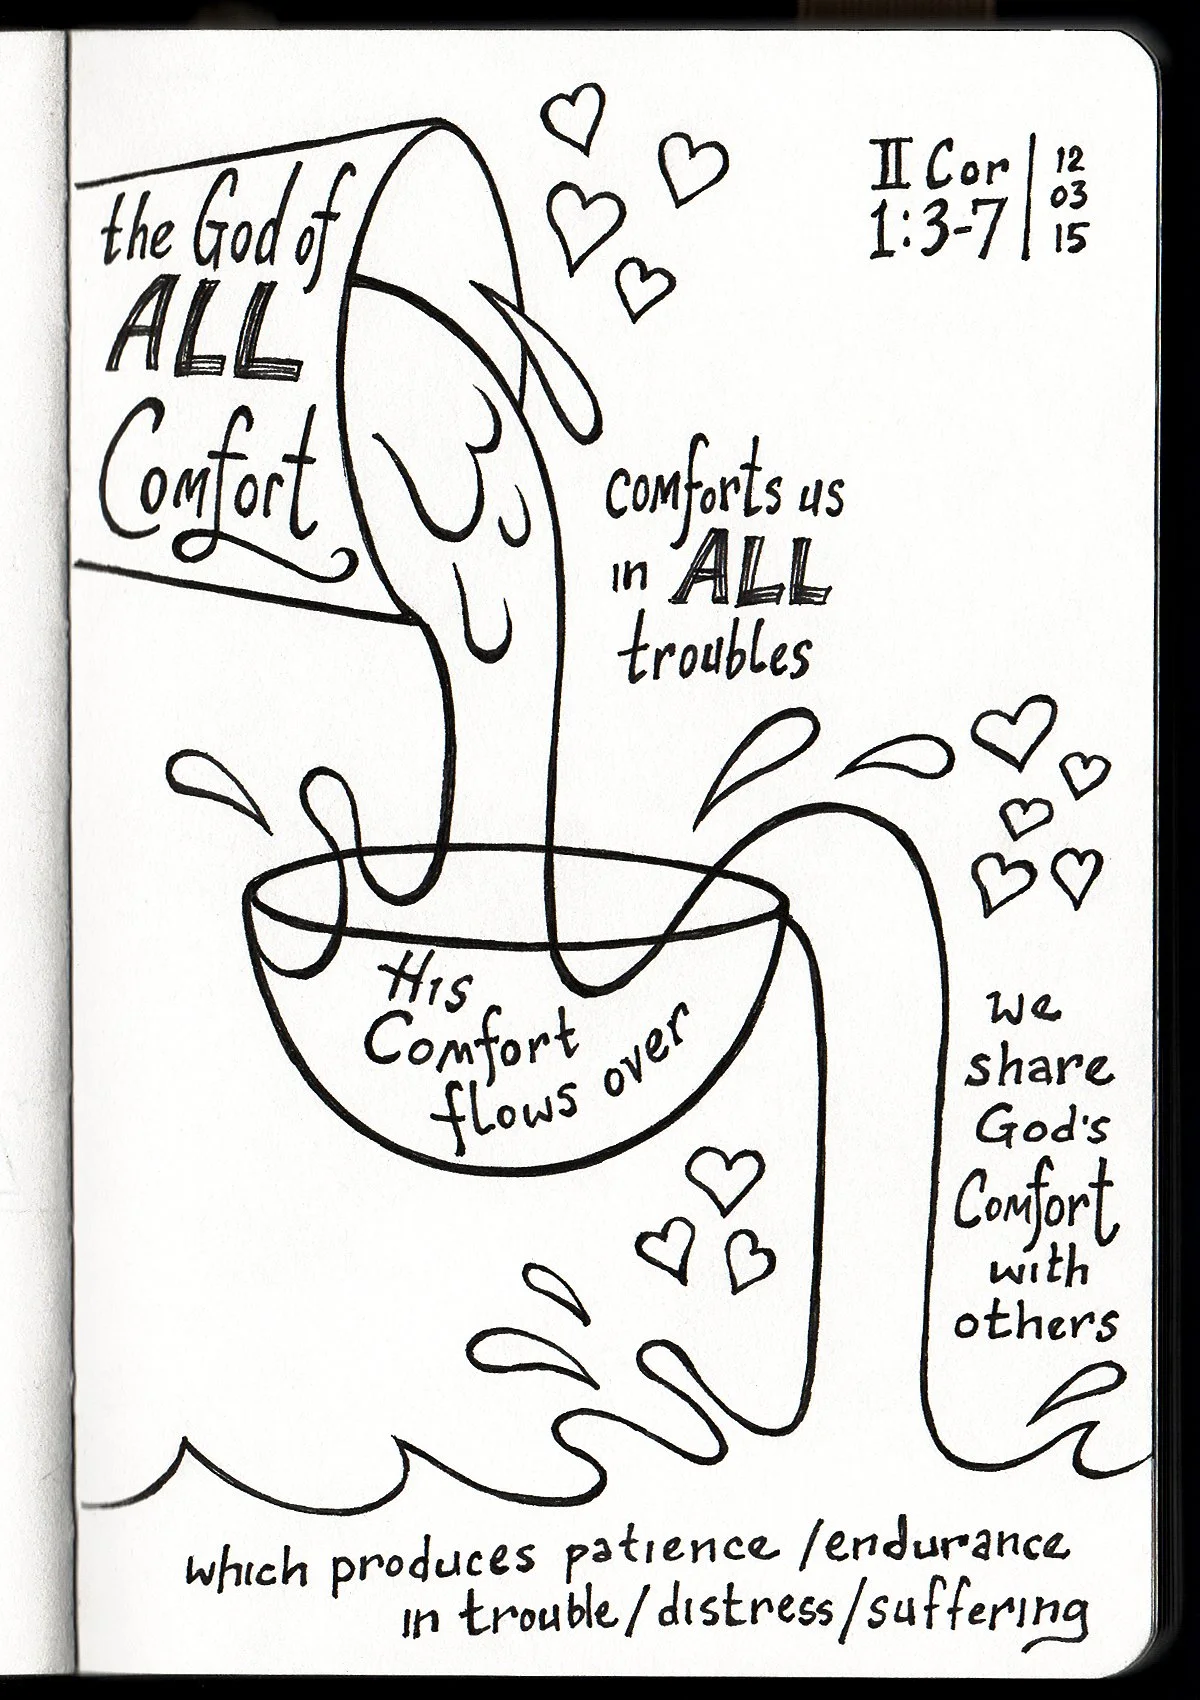 the God of
ALL
Comfort
II Cor
1:3-7
12
03
15
comforts us
in ALL
troubles
His
Comfort
flows over
we
share
God's
Comfort
with
others
which produces patience /endurance
in trouble/distress/suffering